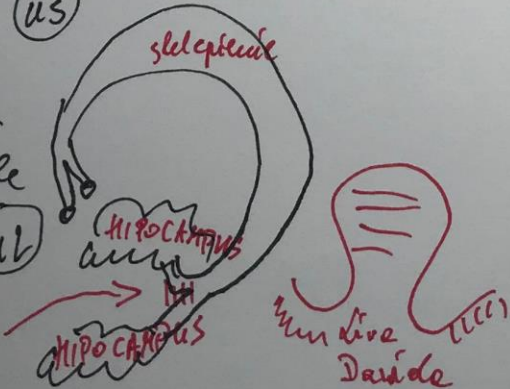 us
sklepienie
HIPOCAMPUS
HIPOCAMPUS
Lira
Davida